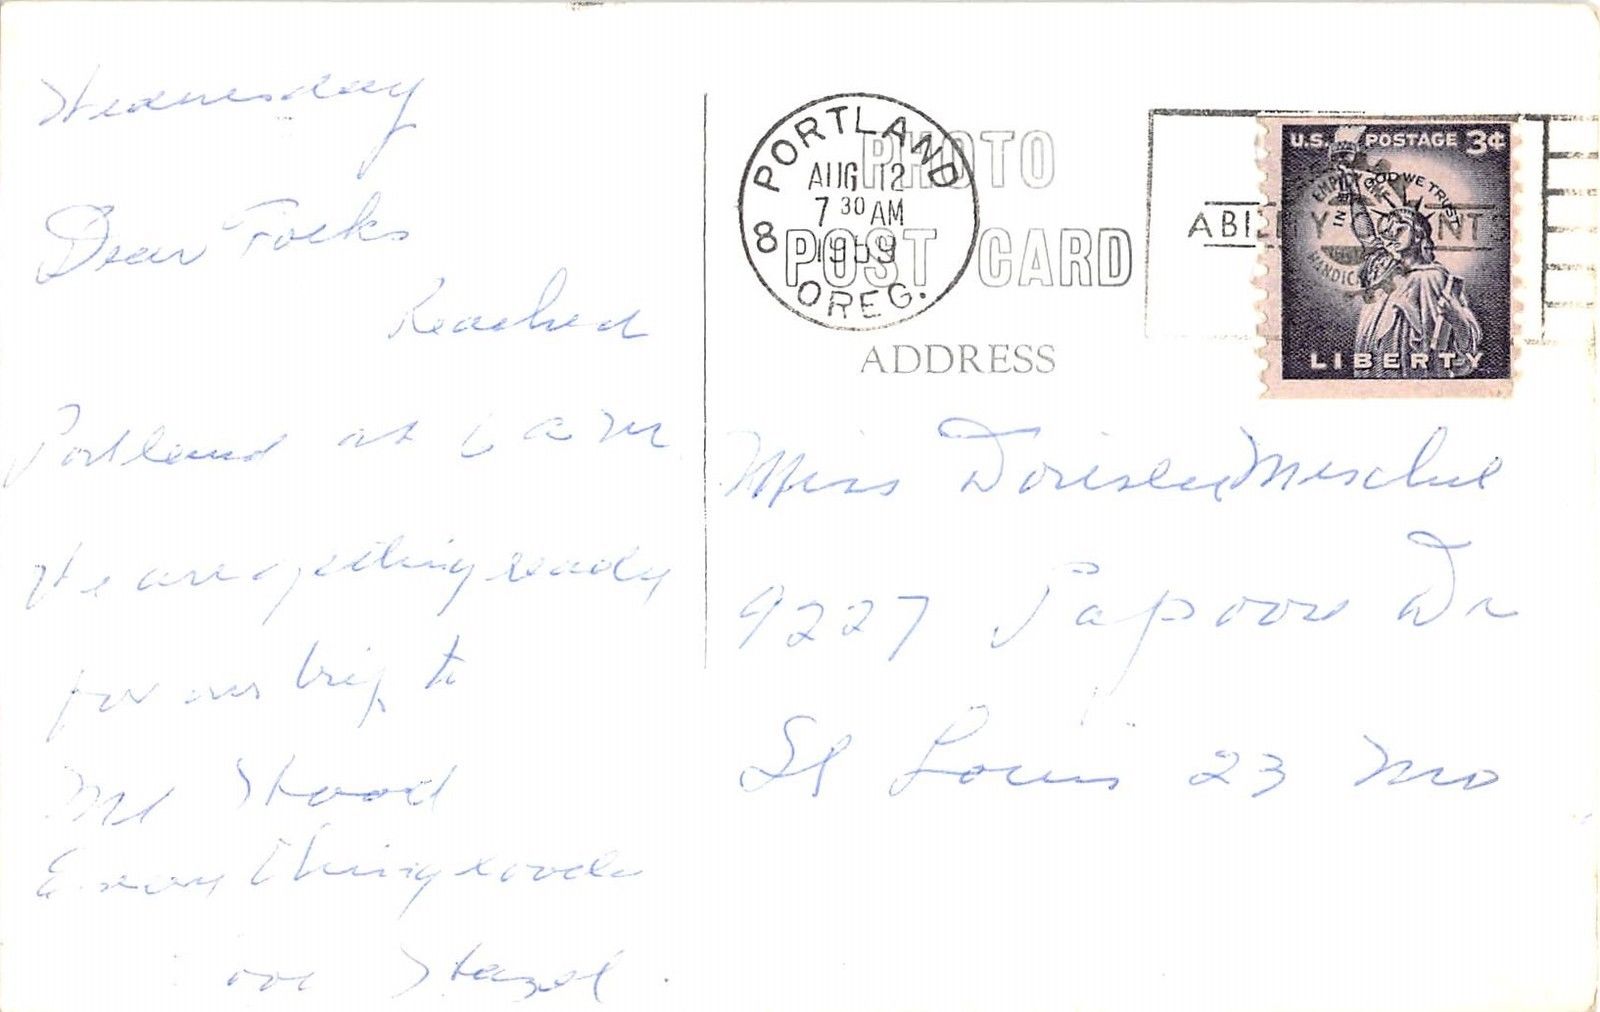 Wednesday
Dear Folks
Reached
Portland at 6 a m
We are getting ready
for our trip to
Mt Hood
Everything lovely
Love Hazel.
PORTLAND
AUG 12
7 30 AM
1959
OREG.
8
PHOTO
POST CARD
ADDRESS
U.S. POSTAGE 3¢
IN GOD WE TRUST
LIBERTY
ABILITY COUNTS
Miss
9227 Papoose Dr
St Louis 23 Mo